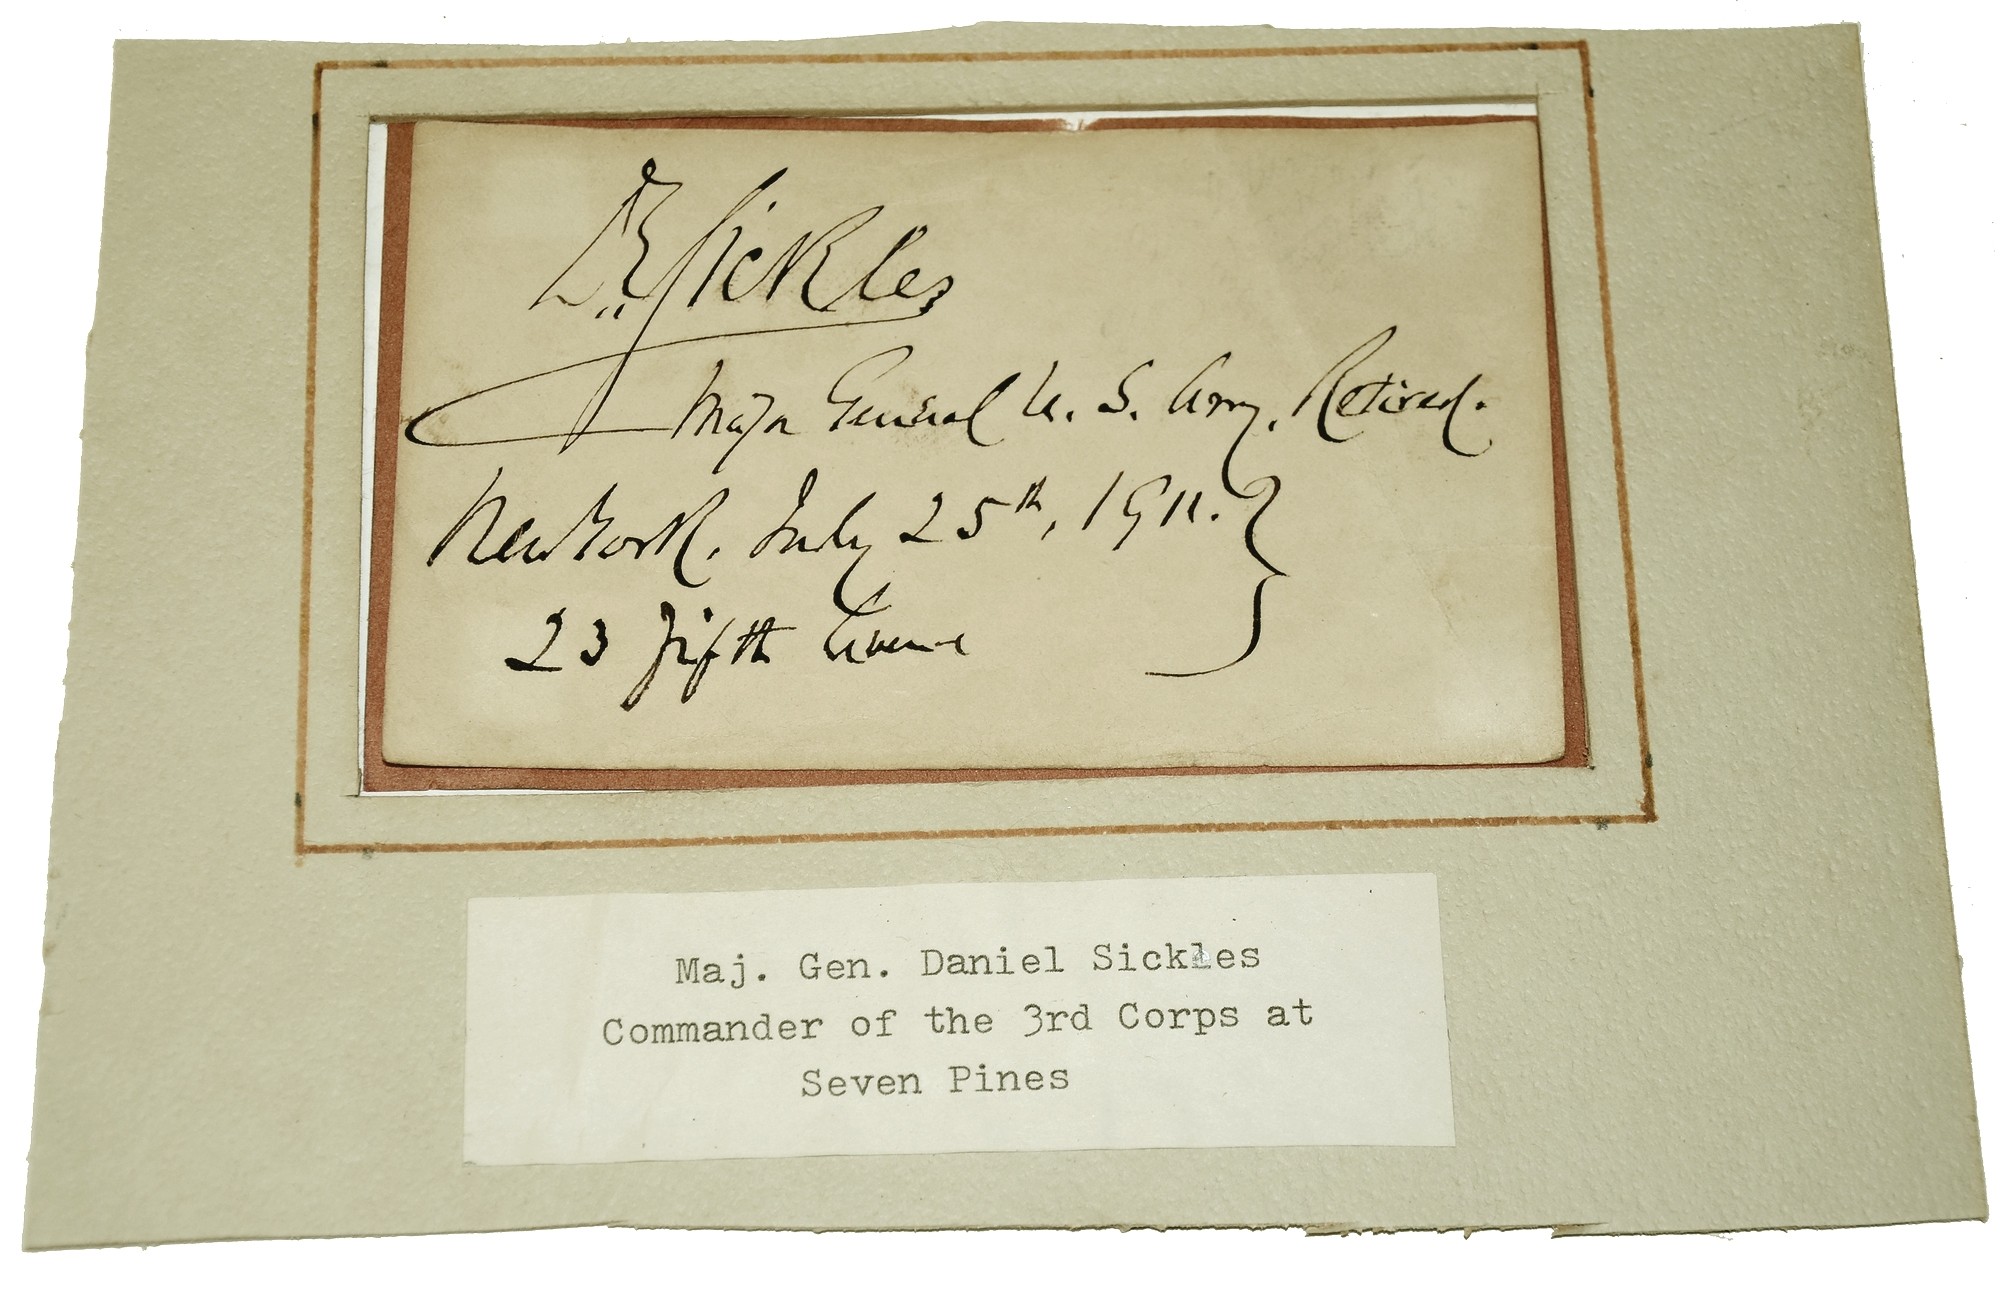 D.E. Sickles
Major General U. S. Army, Retired.
New York, July 25th, 1911.
23 Fifth Avenue
Maj. Gen. Daniel Sickles
Commander of the 3rd Corps at
Seven Pines